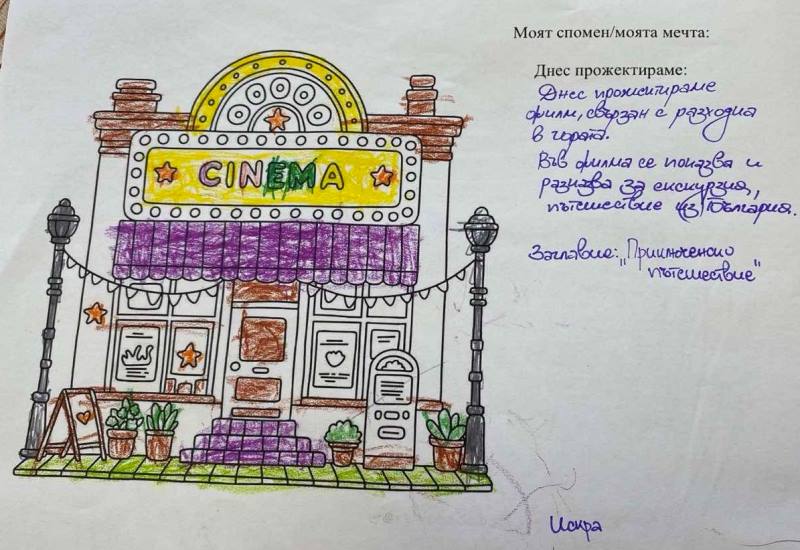 Моят спомен/моята мечта:
Днес прожектираме:
Днес прожектираме
филм, свързан с разходка
в гората.
Във филма се показва и
разказва за екскурзия,
пътешествие из България.
Заглавие: "Приключенско
пътешествие"
CINEMA
Искра